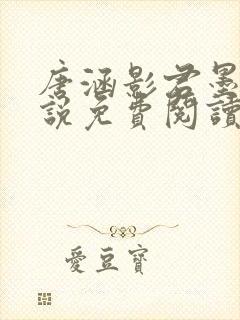 唐涵影君墨
說免費閱讀
愛豆寶